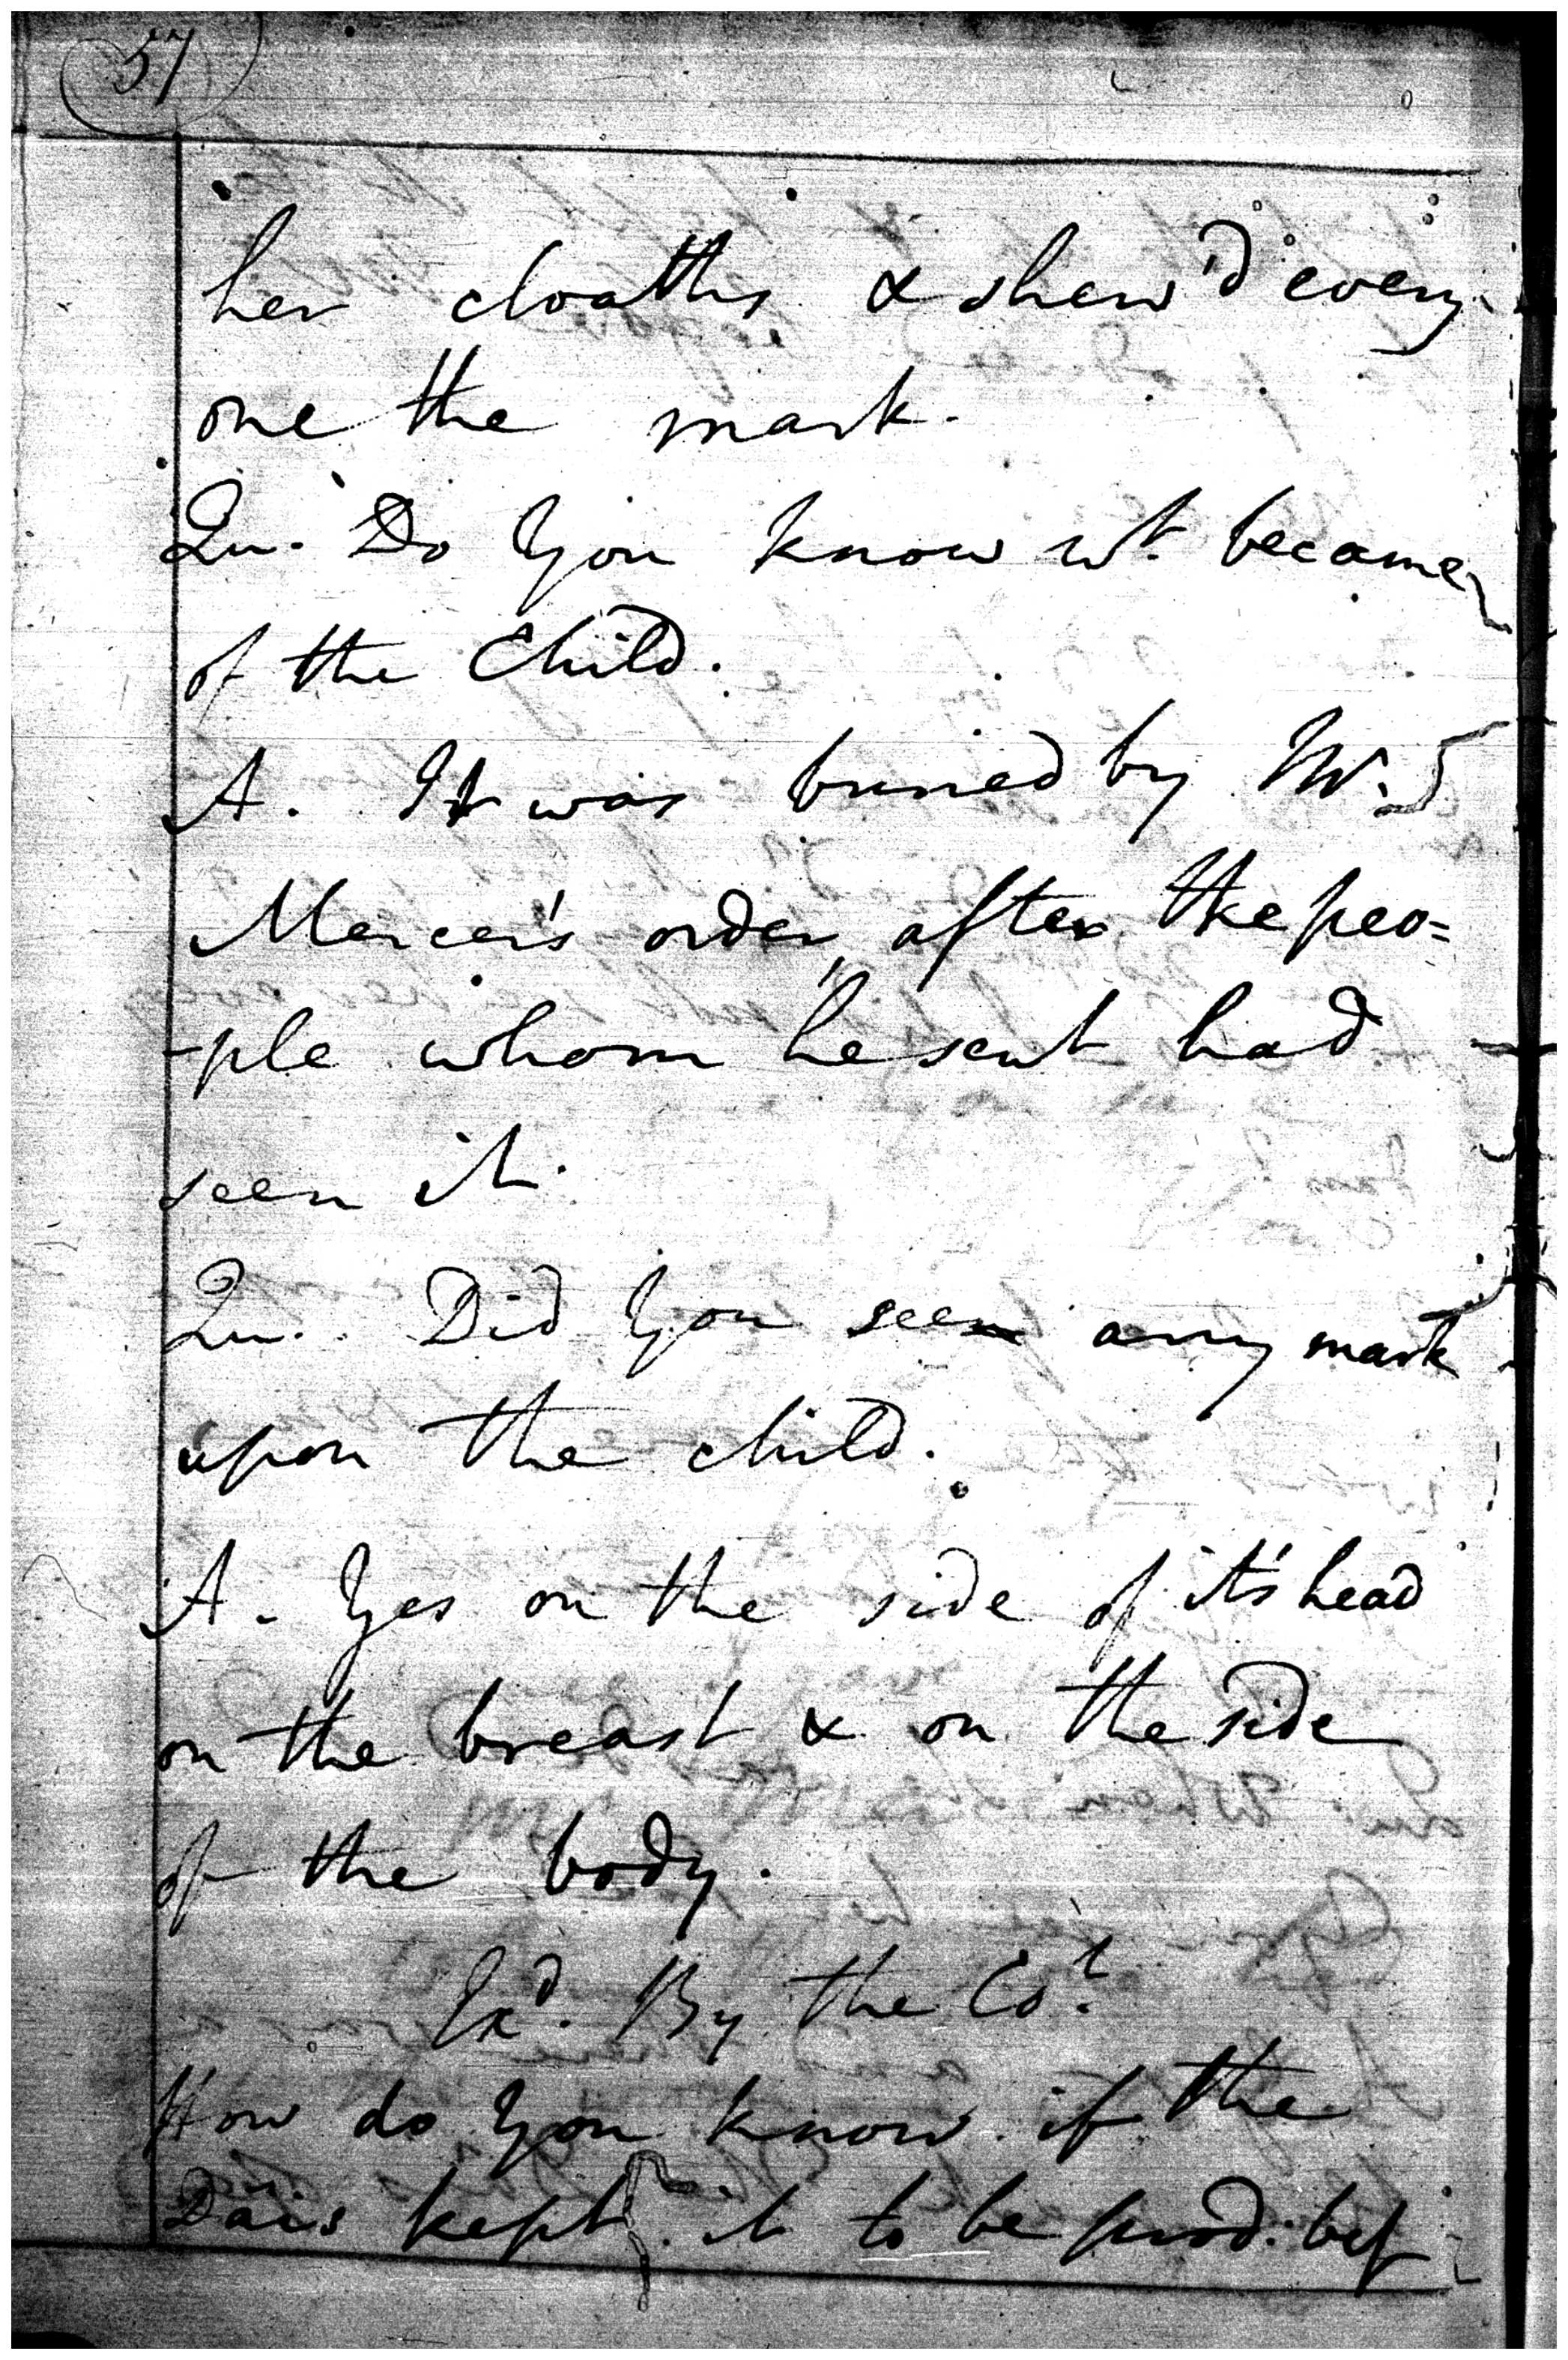 57
her cloaths & shew'd every
one the mark.
Qu. Do You know wt. became
of the Child.
A. It was buried by Mr.
Mercer's order after the peo=
-ple whom he sent had
seen it.
Qu. Did You seen any mark
upon the child.
A. Yes on the side of it's head
on the breast & on the side
of the body.
Exd. By the Cot.
How do You know if the
Dais kept it to be prod: bef